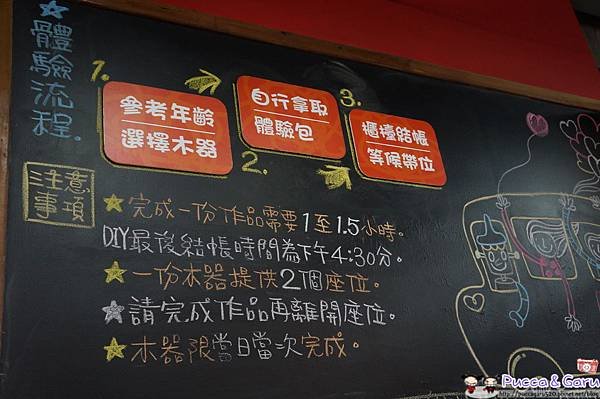 ★體驗流程.
1.
參考年齡
選擇木器
2.
自行拿取
體驗包
3.
櫃檯結帳
等候帶位
注意
事項
★完成一份作品需要1至1.5小時。
DIY最後結帳時間為下午4:30分。
★一份木器提供2個座位。
★請完成作品再離開座位。
★木器限當日當次完成。
Pucca & Garu
http://puccagaru520.pixnet.net/blog